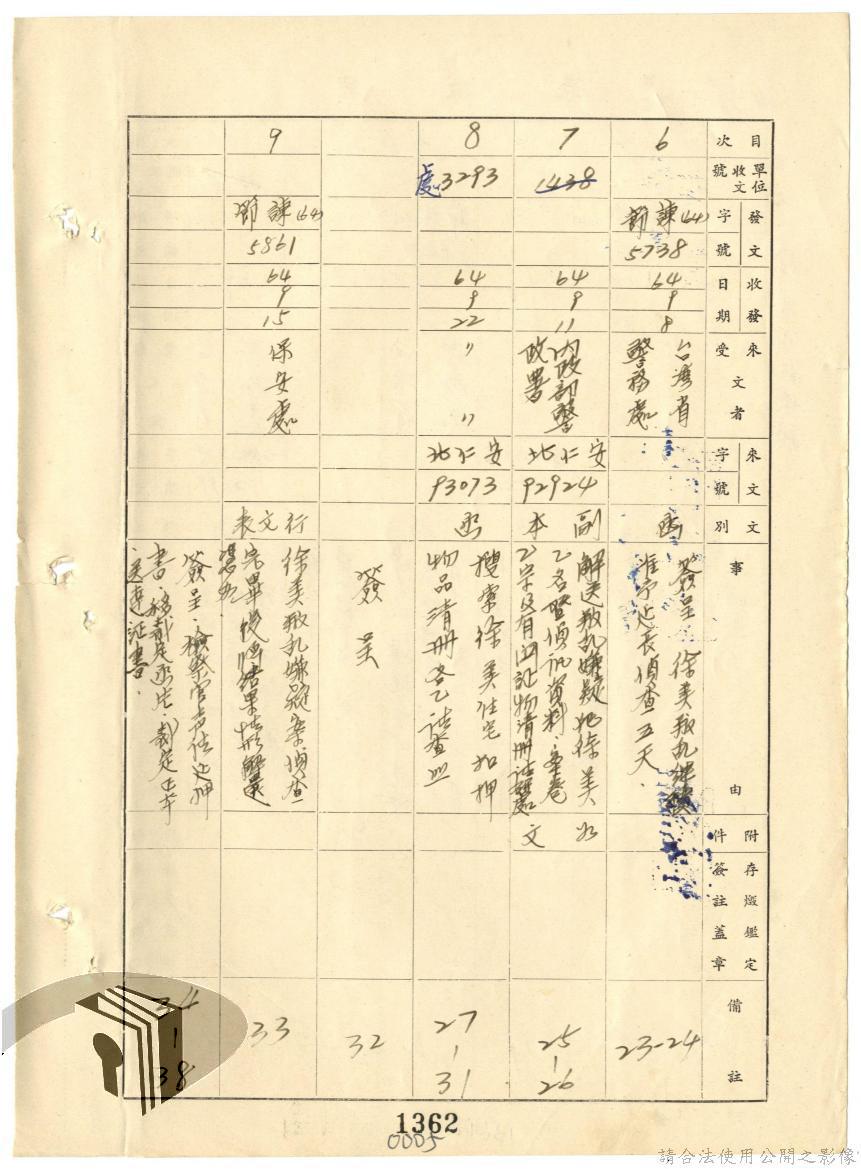 目次
單位收文號
發文字號
收發日期
來文受者
來文字號
文別
事由
附件
存燬鑑定簽註蓋章
備註
6
諫(64)
5738
64
9
8
台灣省
警務處
函
簽呈 徐美叛乱嫌疑
准予延長偵查五天.
23-24
7
1438
64
9
11
內政部警
政署
北仁安
92924
副本
解送叛乱嫌疑犯徐美
乙名暨偵訊資料、案卷
乙宗及有関証物清冊請
如文
25
|
26
8
處3293
64
9
22
〃 〃
北仁安
93073
函
搜索徐美住宅扣押
物品清冊各乙請查照
27
|
31
簽呈
32
9
諫(64)
5861
64
9
15
保安處
行文表
徐美叛乱嫌疑案、偵查
完畢後
33
簽呈.檢察官声請延押
書.裁定正本
送達証書.
34
|
38
1362
0005
請合法使用公開之影像